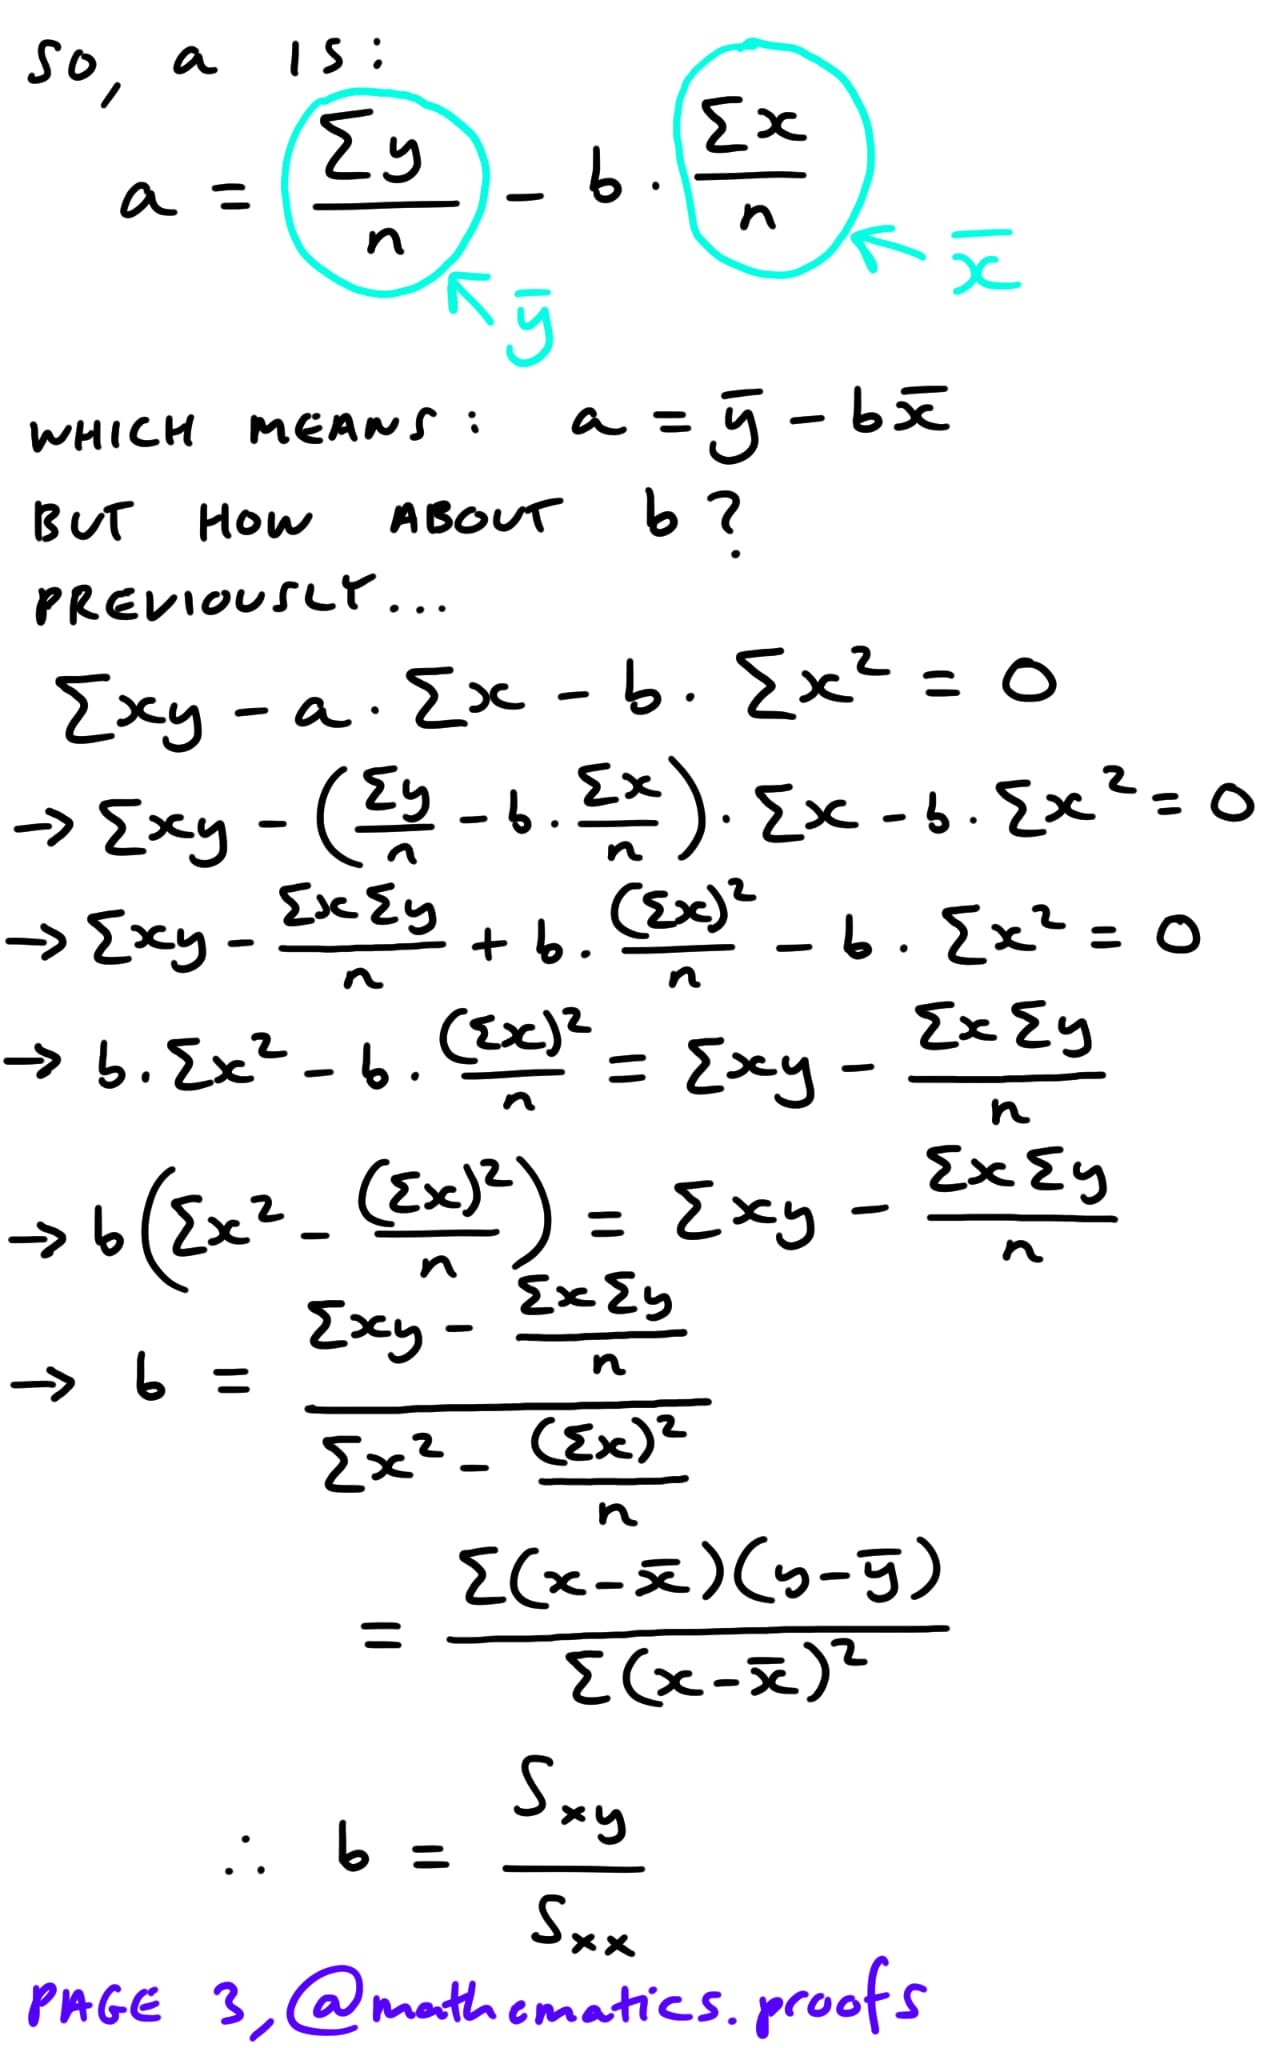 SO, a IS:
a = Σy/n - b · Σx/n
x̄
ȳ
WHICH MEANS: a = ȳ - bx̄
BUT HOW ABOUT b?
PREVIOUSLY...
Σxy - a · Σx - b · Σx² = 0
→ Σxy - (Σy/n - b · Σx/n) · Σx - b · Σx² = 0
→ Σxy - ΣxΣy/n + b · (Σx)²/n - b · Σx² = 0
→ b · Σx² - b · (Σx)²/n = Σxy - ΣxΣy/n
→ b(Σx² - (Σx)²/n) = Σxy - ΣxΣy/n
→ b = (Σxy - ΣxΣy/n)/(Σx² - (Σx)²/n)
= Σ(x-x̄)(y-ȳ)/Σ(x-x̄)²
∴ b = Sxy/Sxx
PAGE 3, @mathematics.proofs